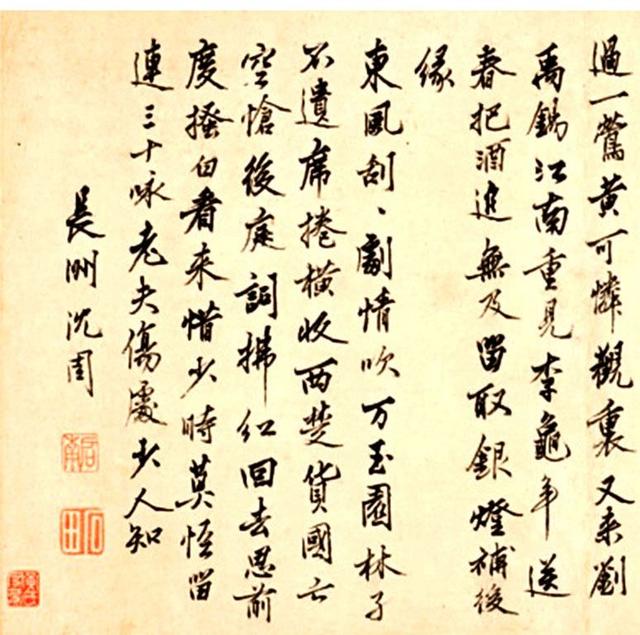 過一鶯黃可憐觀裏又來劉
禹錫江南重見李龜年送
春把酒追無及留取銀燈補後
緣
東風刮刮劇情吹万玉園林子
不遺席捲橫收西楚貨國亡
空愴後庭詞拂紅回去思前
度搔白看來惜少時莫怪留
連三十咏老夫傷處少人知
長洲沈周
啟南
石田